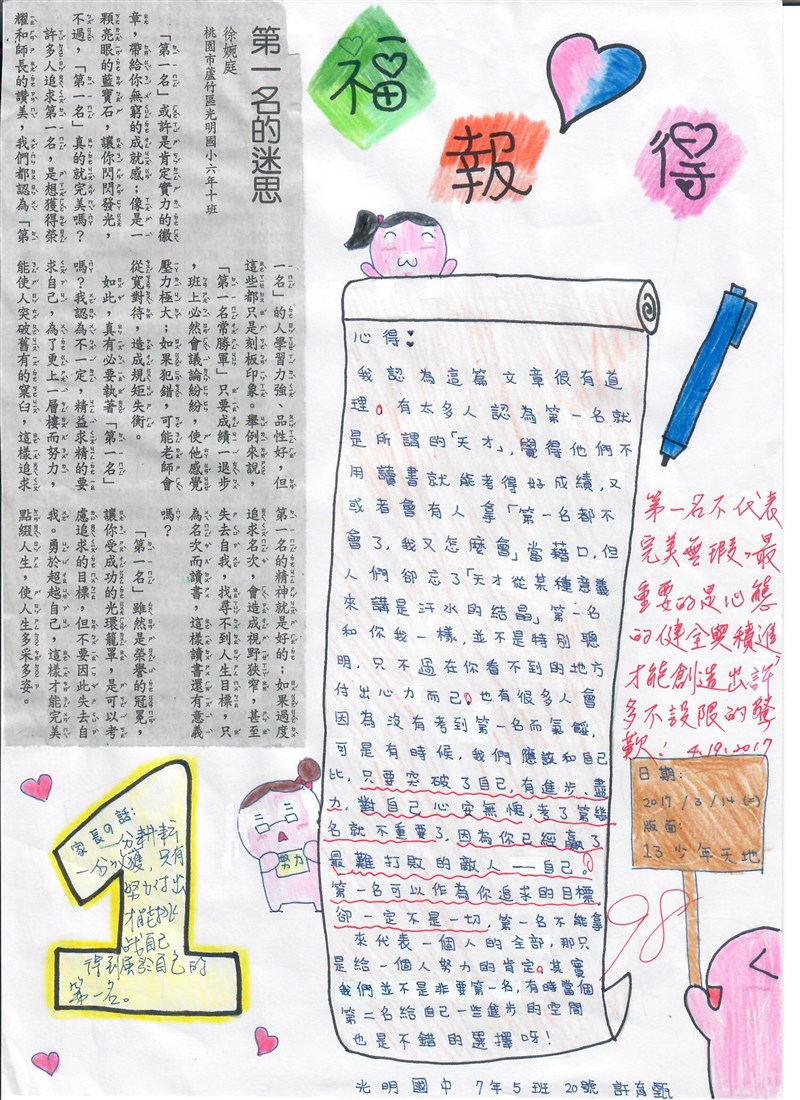 福報得
第一名的迷思
徐婉庭
桃園市蘆竹區光明國小六年十班
「第一名」或許是肯定實力的徽
章,帶給你無窮的成就感;像是一
顆亮眼的藍寶石,讓你閃閃發光,
不過,「第一名」真的就完美嗎?
許多人追求第一名,是想獲得榮
耀和師長的讚美,我們都認為「第
一名」的人學習力強、品性好,但
這些都只是刻板印象。舉例來說,
「第一名常勝軍」只要成績一退步
,班上必然會議論紛紛,使他感覺
壓力極大;如果犯錯,可能老師會
從寬對待,造成規矩失衡。
如此,真有必要執著「第一名」
嗎?我認為不一定,精益求精的要
求自己,為了更上一層樓而努力,
能使人突破舊有的窠臼,這樣追求
第一名的精神就是好的;如果過度
追求名次,會造成視野狹窄,甚至
失去自我,找尋不到人生目標,只
為名次而讀書,這樣讀書還有意義
嗎?
「第一名」雖然是榮譽的冠冕,
讓你受成功的光環籠罩,是可以考
慮追求的目標,但不要因此失去自
我。勇於超越自己,這樣才能完美
點綴人生,使人生多采多姿。
心得:
我認為這篇文章很有道
理。有太多人認為第一名就
是所謂的「天才」,覺得他們不
用讀書就能考得好成績,又
或者會有人拿「第一名都不
會了,我又怎麼會」當藉口,但
人們卻忘了「天才從某種意義
來講是汗水的結晶」第一名
和你我一樣,並不是特別聰
明,只不過在你看不到的地方
付出心力而已。也有很多人會
因為沒有考到第一名而氣餒,
可是有時候,我們應該和自己
比,只要突破了自己,有進步、盡
力,對自己心安無愧,考了第幾
名就不重要了,因為你已經贏了
最難打敗的敵人——自己。
第一名可以作為你追求的目標,
卻一定不是一切,第一名不能拿
來代表一個人的全部,那只
是給一個人努力的肯定。其實
我們並不是非要第一名,有時當個
第二名給自己一些進步的空間
也是不錯的選擇呀!
第一名不代表
完美無瑕,最
重要的是心態
的健全與積進,
才能創造出許
多不設限的發
歎! 4.19.2017
98
日期:
2017/3/14(二)
版面:
13少年天地
努力
家長の話:
一分耕耘
一分收獲,只有
努力付出
才能挑戰自己
得到屬於自己的
第一名。
光明國中 7年5班 20號 許育甄